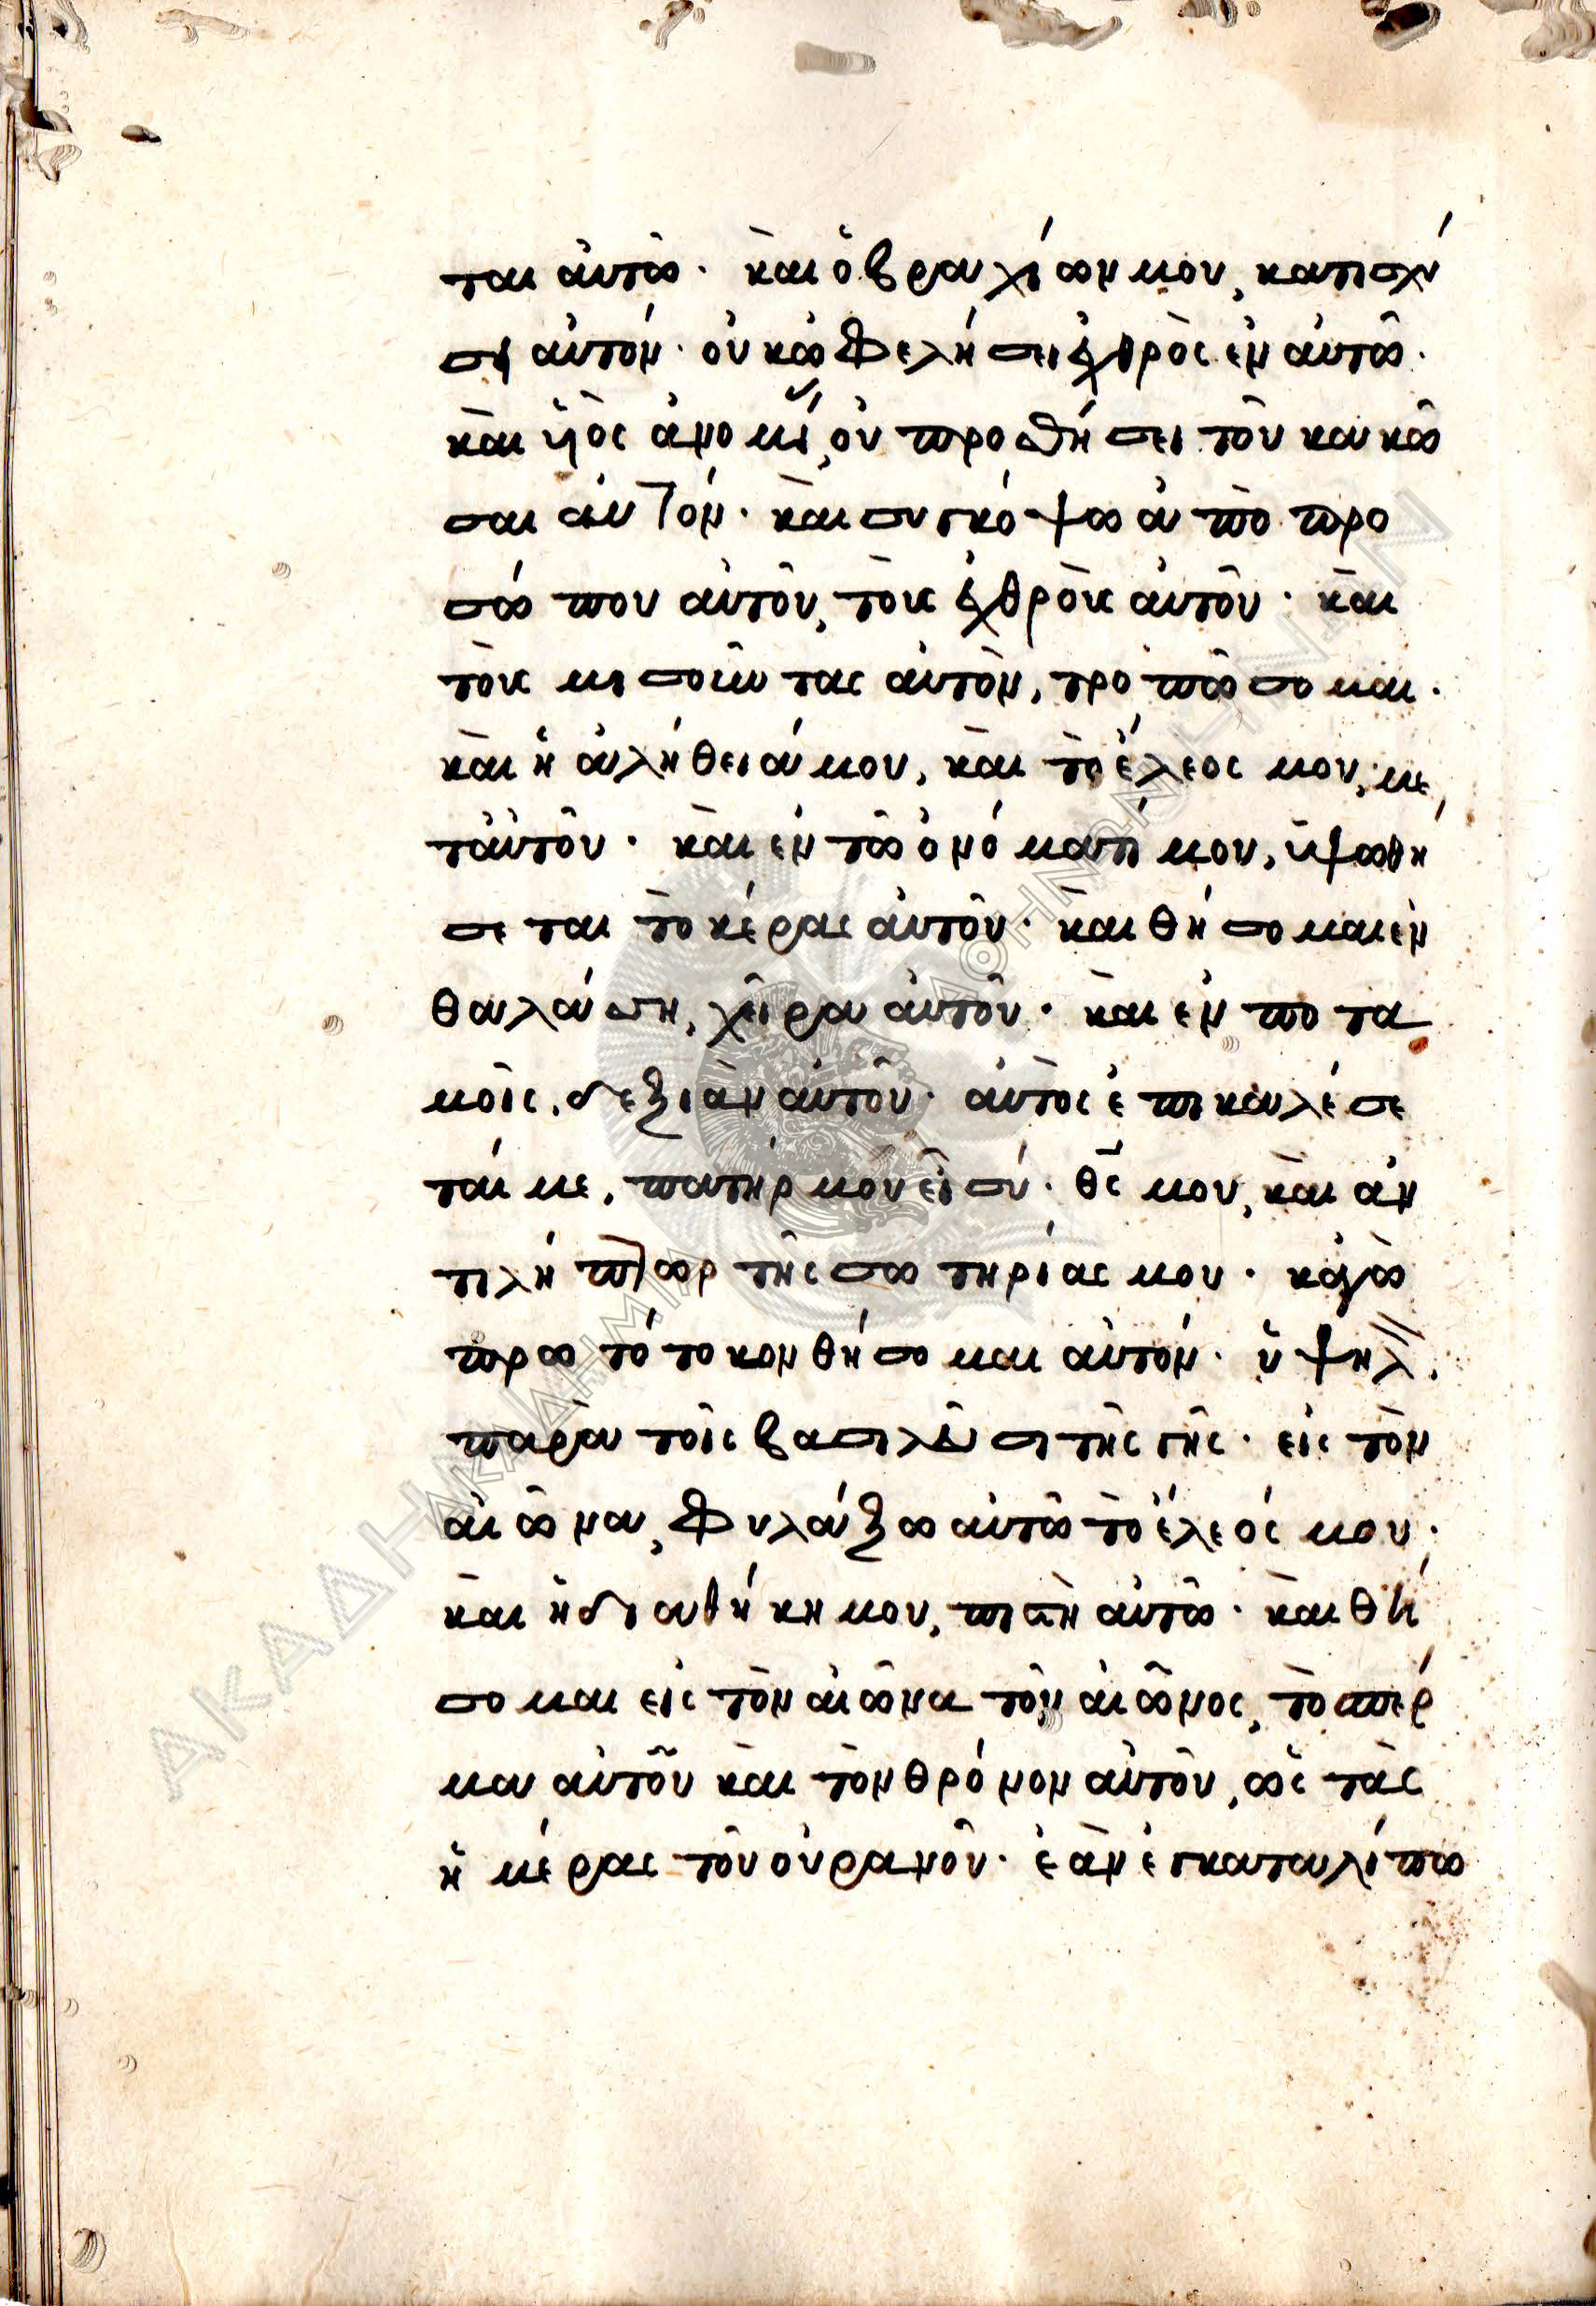 ται αὐτῶ· καὶ ὁ βραχίων μου, κατισχύ
σει αὐτόν· οὐκ ὠφελήσει ἐχθρὸς ἐν αὐτῶ·
καὶ υἱὸς ἀνομίας, οὐ προσθήσει τοῦ κακῶ
σαι αὐτόν· καὶ συγκόψω ἀπὸ προ
σώπου αὐτοῦ, τοὺς ἐχθροὺς αὐτοῦ· καὶ
τοὺς μισοῦντας αὐτὸν, τροπώσομαι·
καὶ ἡ ἀλήθειά μου, καὶ τὸ ἔλεος μου, με
τ' αὐτοῦ· καὶ ἐν τῶ ὀνόματί μου, ὑψωθή
σεται τὸ κέρας αὐτοῦ· καὶ θήσομαι ἐν
θαλάσση, χεῖρα αὐτοῦ· καὶ ἐν ποτα
μοῖς, δεξιὰν αὐτοῦ· αὐτὸς ἐπικαλέσε
ταί με, πατήρ μου εἶ σύ· θς μου, καὶ ἀν
τιλήπτωρ τῆς σωτηρίας μου· κἀγὼ
πρωτότοκον θήσομαι αὐτόν· ὑψηλὸν
παρὰ τοῖς βασιλεῦσι τῆς γῆς· εἰς τὸν
αἰῶνα, φυλάξω αὐτῶ τὸ ἔλεός μου·
καὶ ἡ διαθήκη μου, πιστὴ αὐτῶ· καὶ θή
σομαι εἰς τὸν αἰῶνα τοῦ αἰῶνος, τὸ σπέρ
μα αὐτοῦ καὶ τὸν θρόνον αὐτοῦ, ὡς τὰς
ἡμέρας τοῦ οὐρανοῦ· ἐὰν ἐγκαταλίπω
ΑΚΑΔΗΜΙΑ ΑΘΗΝΩΝ